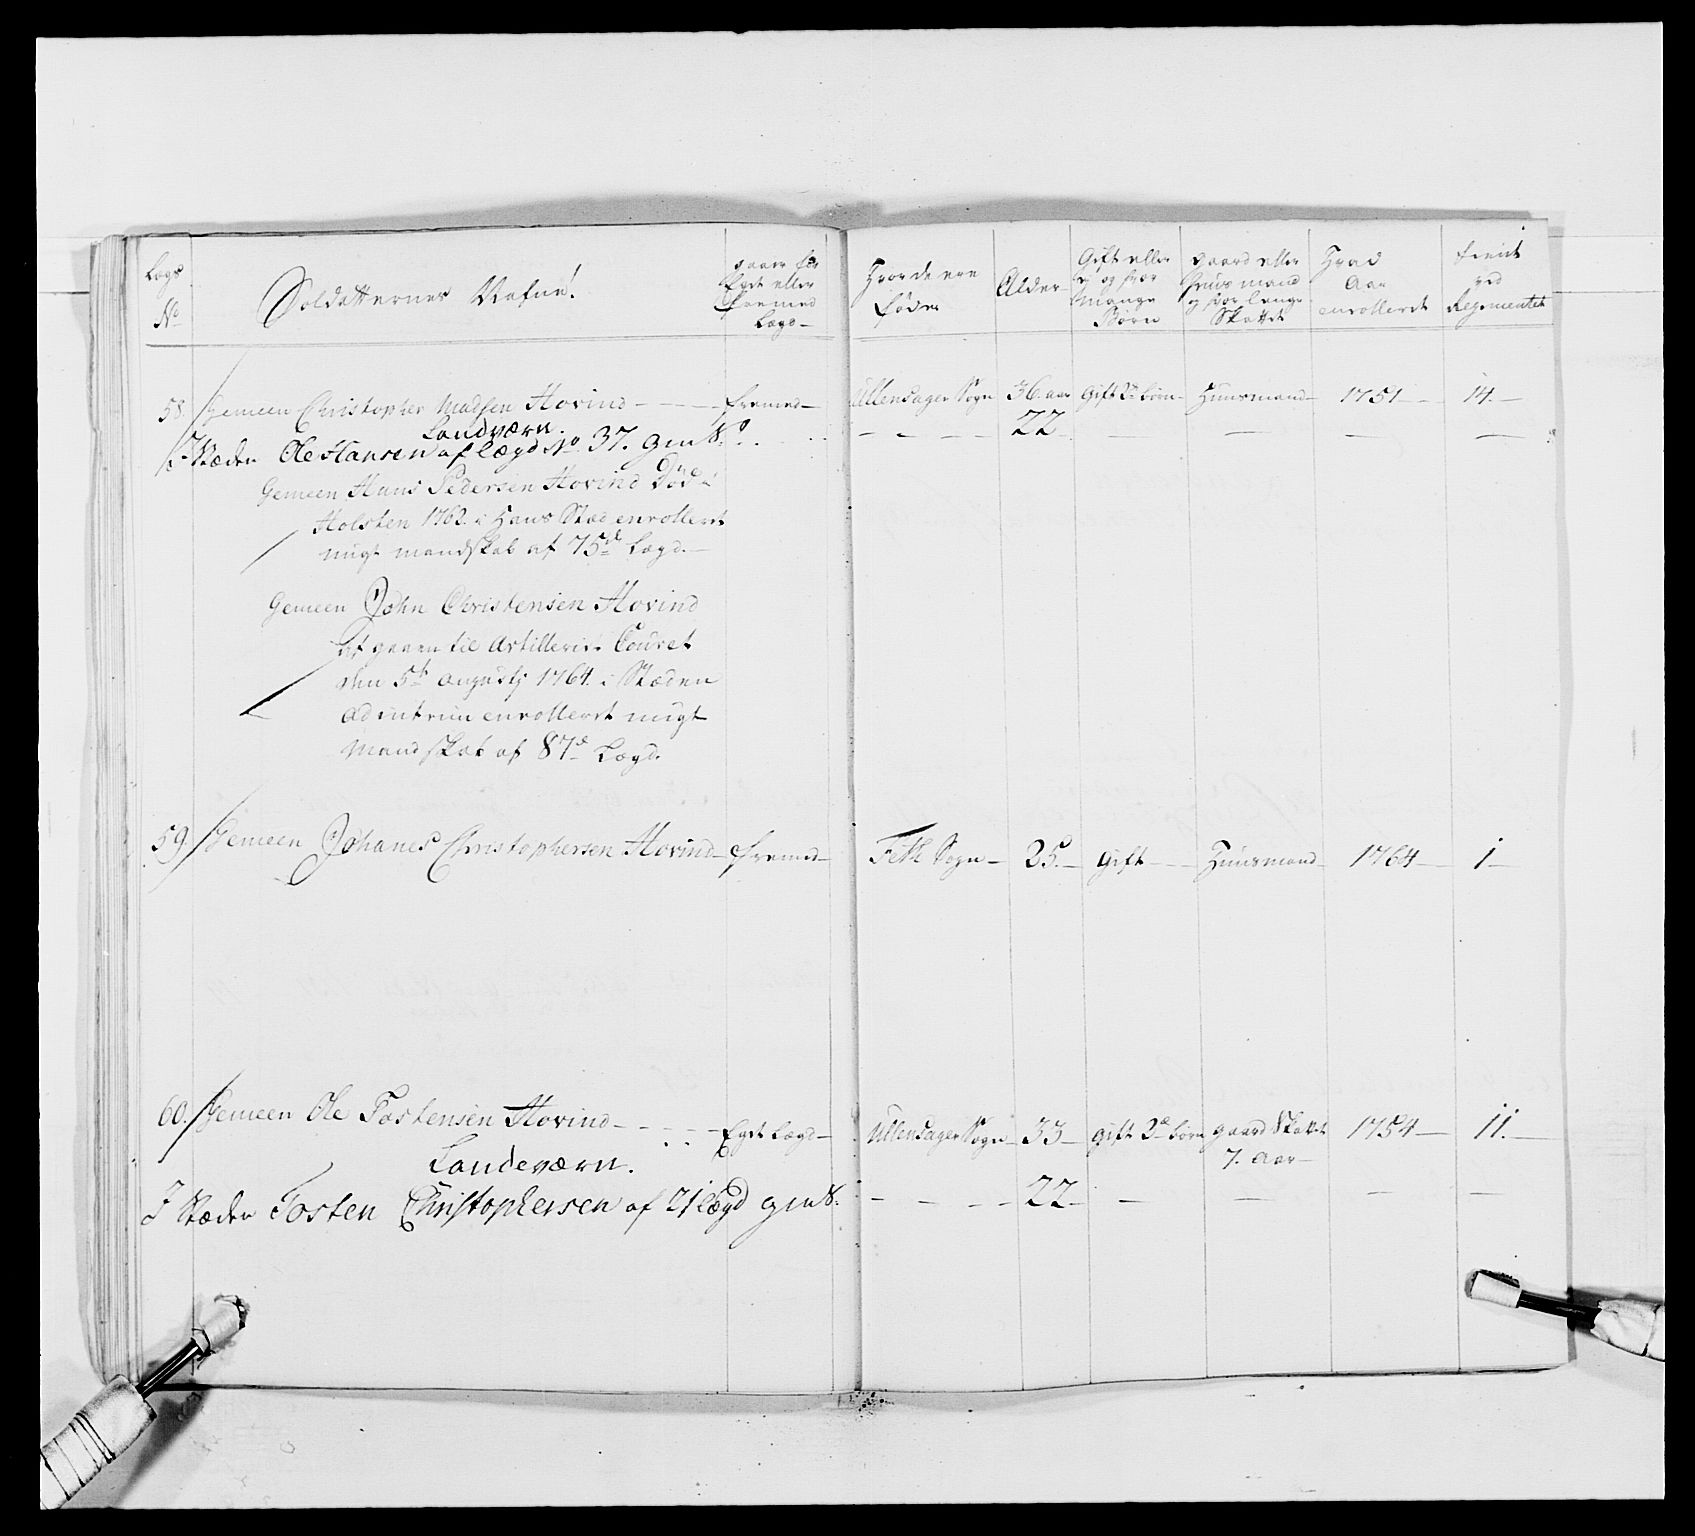 Legs No
Soldatternes Nafne!
staar for Eget eller fremed Lægd
Hvor de ere føder
Alder
Gift eller ey og hvor mange Børn
gaard eller Huusmand og hvor lenge Skattet
Hvad Aar enrolleret
tient ved Regimentet
58. Gemeen Christopher Madsen Hovind fremed Ullensager Sogn 36. aar Gift 2 børn Huusmand 1751 14.
Landværn.
I Stæden Ole Hansen af lægd No 37. 22
Gemeen Hans Pedersen Hovind Død i
Holsten 1762. i Hans Stæd enrolleret
nügt mandskab af 75de Lægd.
Gemeen John Christensen Hovind
gaaen til Artillerie
den 5te augustj 1764. i Stæden
ad intrim enrolleret nügt
Mandskab af 87de Lægd.
59. Gemeen Johanes Christophersen Hovind fremed Feth Sogn 25. Gift Huusmand 1764 1
60. Gemeen Ole Tostensen Hovind Eget Lægd Ullensager Sogn 33 gift 2de børn gaard Skattet 1754 11.
7. Aar
Landeværn.
I Stæden Tosten Christophersen af 21 lægd 22